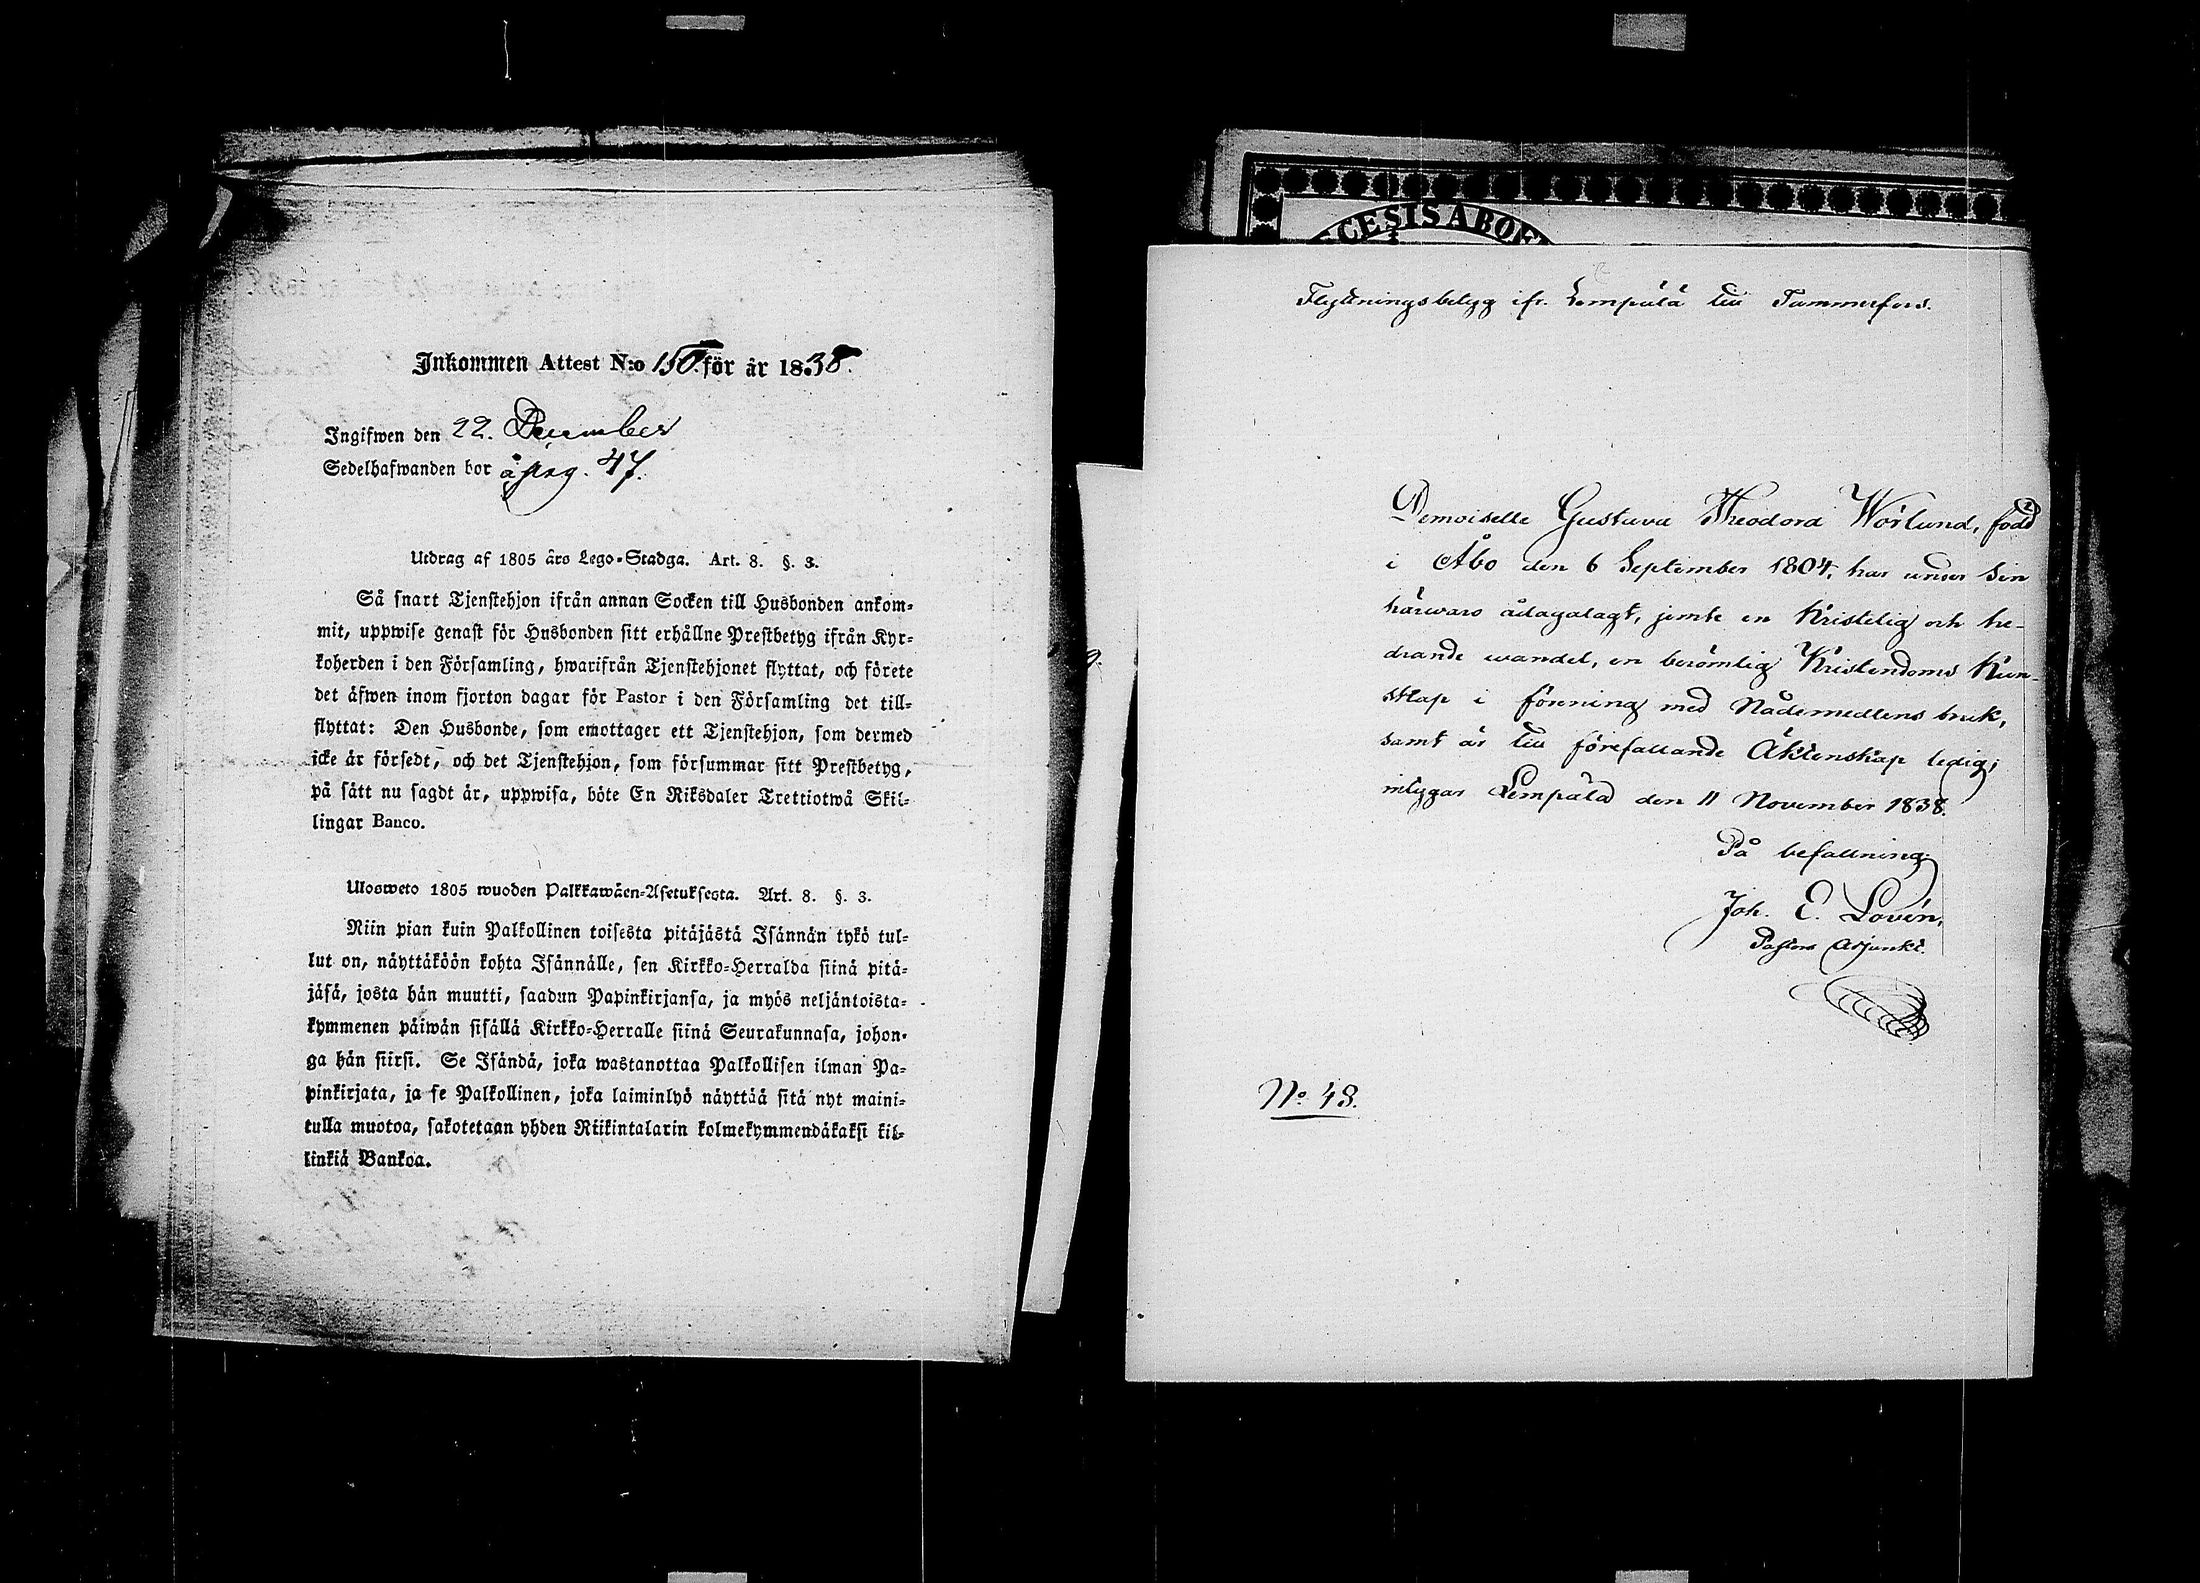 Inkommen Attest N:o 150 för år 1838.
Ingifwen den 22. December
Sedelhafwanden bor å pag. 47.
Utdrag af 1805 års Lego-Stadga. Art. 8. §. 3.
Så snart Tjenstehjon ifrån annan Socken till Husbonden ankom-
mit, uppwise genast för Husbonden sitt erhållne Prestbetyg ifrån Kyr-
koherden i den Församling, hwarifrån Tjenstehjonet flyttat, och förete
det äfwen inom fjorton dagar för Pastor i den Församling det till-
flyttat: Den Husbonde, som emottager ett Tjenstehjon, som dermed
icke är försedt, och det Tjenstehjon, som försummar sitt Prestbetyg,
på sätt nu sagdt är, uppwisa, böte En Riksdaler Trettiotwå Skil-
lingar Banco.
Ulosweto 1805 wuoden Palkkawäen-Asetuksesta. Art. 8. §. 3.
Niin pian kuin Palkollinen toisesta pitäjästä Isännän tykö tul-
lut on, näyttäköön kohta Isännälle, sen Kirkko-Herralda siinä pitä-
jäsä, josta hän muutti, saadun Papinkirjansa, ja myös neljäntoista-
kymmenen päiwän sisällä Kirkko-Herralle siinä Seurakunnasa, johon-
ga hän siirsi. Se Isändä, joka wastanottaa Palkollisen ilman Pa-
pinkirjata, ja se Palkollinen, joka laiminlyö näyttää sitä nyt maini-
tulla muotoa, sakotetaan yhden Riikintalarin kolmekymmendäkaksi kil-
linkiä Bankoa.
CESIS ABOE
Flyttningsbetyg ifr. Lempälä till Tammerfors.
Demoiselle Gustava Theodora Wörlund, född
i Åbo den 6 September 1804, har under sin
härwaro ådagalagt, jemte en Kristelig och he-
drande wandel, en berömlig Kristendoms Kun-
skap i förening med Nådemedlens bruk,
samt är till förefallande Äktenskap ledig;
intygar Lempälä den 11 November 1838.
På befallning
Joh. E. Lovén,
Pastors Adjunkt.
No 48.